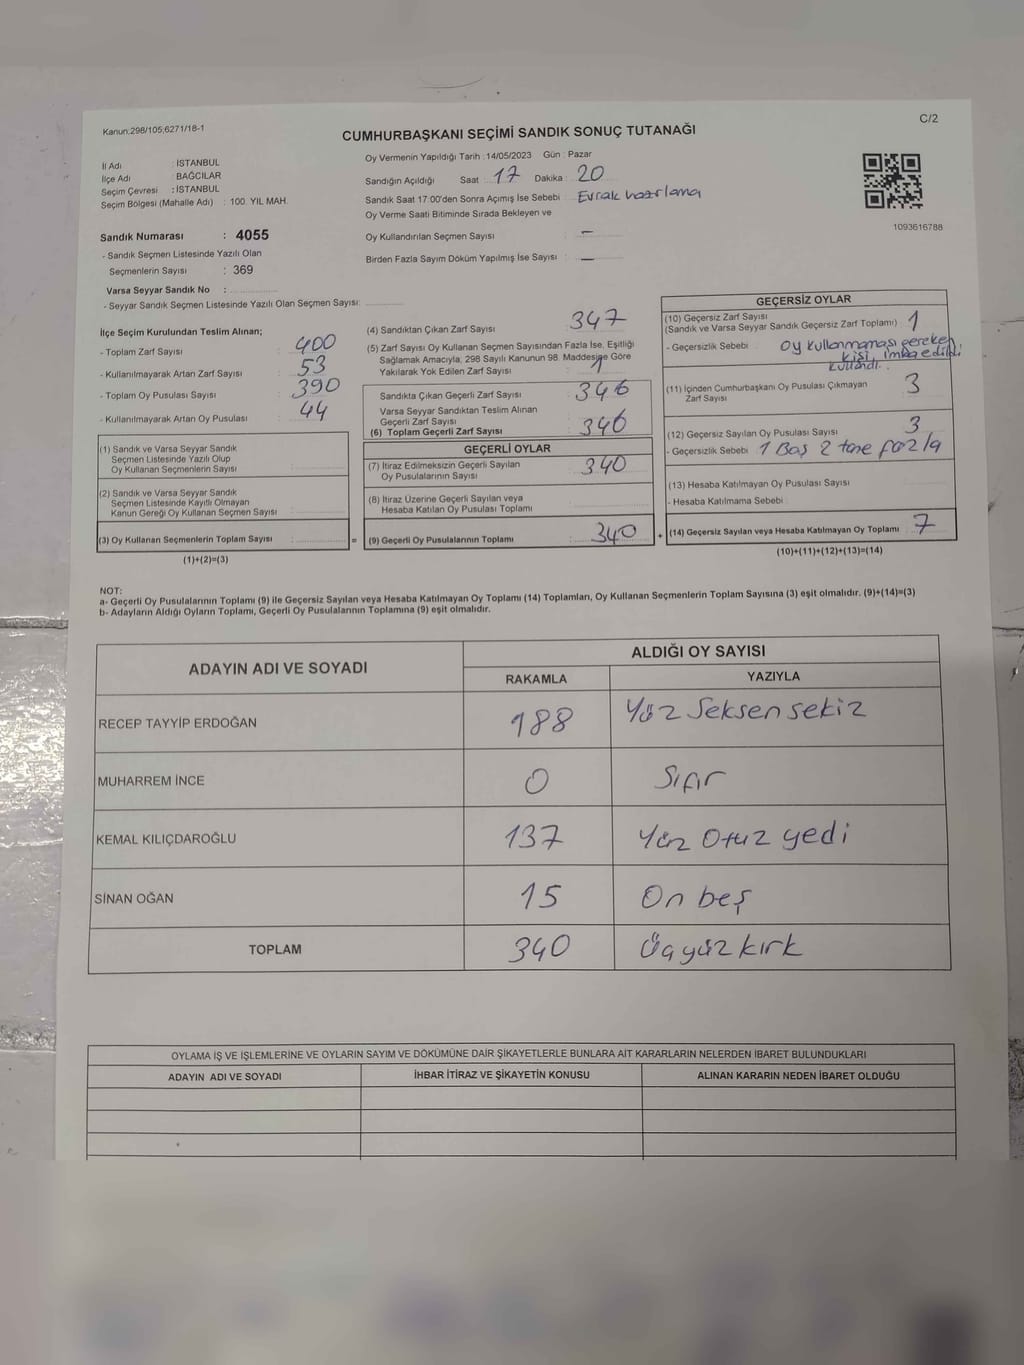 Kanun:298/105;6271/18-1
C/2
CUMHURBAŞKANI SEÇİMİ SANDIK SONUÇ TUTANAĞI
İl Adı : İSTANBUL
İlçe Adı : BAĞCILAR
Seçim Çevresi : İSTANBUL
Seçim Bölgesi (Mahalle Adı) : 100. YIL MAH.
Oy Vermenin Yapıldığı Tarih :14/05/2023 Gün : Pazar
Sandığın Açıldığı Saat : 17 Dakika : 20
Sandık Saat 17:00'den Sonra Açımış İse Sebebi : Evrak hazırlama
Oy Verme Saati Bitiminde Sırada Bekleyen ve
Oy Kullandırılan Seçmen Sayısı : —
Birden Fazla Sayım Döküm Yapılmış İse Sayısı : —
1093616788
Sandık Numarası : 4055
- Sandık Seçmen Listesinde Yazılı Olan
Seçmenlerin Sayısı : 369
Varsa Seyyar Sandık No :
- Seyyar Sandık Seçmen Listesinde Yazılı Olan Seçmen Sayısı:
İlçe Seçim Kurulundan Teslim Alınan;
- Toplam Zarf Sayısı : 400
- Kullanılmayarak Artan Zarf Sayısı : 53
- Toplam Oy Pusulası Sayısı : 390
- Kullanılmayarak Artan Oy Pusulası : 44
(1) Sandık ve Varsa Seyyar Sandık
Seçmen Listesinde Yazılı Olup
Oy Kullanan Seçmenlerin Sayısı :
(2) Sandık ve Varsa Seyyar Sandık
Seçmen Listesinde Kayıtlı Olmayan
Kanun Gereği Oy Kullanan Seçmen Sayısı :
(3) Oy Kullanan Seçmenlerin Toplam Sayısı : =
(1)+(2)=(3)
(4) Sandıktan Çıkan Zarf Sayısı : 347
(5) Zarf Sayısı Oy Kullanan Seçmen Sayısından Fazla İse, Eşitliği
Sağlamak Amacıyla, 298 Sayılı Kanunun 98. Maddesine Göre
Yakılarak Yok Edilen Zarf Sayısı : 1
Sandıkta Çıkan Geçerli Zarf Sayısı : 346
Varsa Seyyar Sandıktan Teslim Alınan
Geçerli Zarf Sayısı :
(6) Toplam Geçerli Zarf Sayısı : 346
GEÇERLİ OYLAR
(7) İtiraz Edilmeksizin Geçerli Sayılan : 340
Oy Pusulalarının Sayısı
(8) İtiraz Üzerine Geçerli Sayılan veya
Hesaba Katılan Oy Pusulası Toplamı :
(9) Geçerli Oy Pusulalarının Toplamı : 340 +
GEÇERSİZ OYLAR
(10) Geçersiz Zarf Sayısı : 1
(Sandık ve Varsa Seyyar Sandık Geçersiz Zarf Toplamı)
- Geçersizlik Sebebi : Oy kullanmaması gereken
kişi, imha edildi.
kullandı.
(11) İçinden Cumhurbaşkanı Oy Pusulası Çıkmayan : 3
Zarf Sayısı
(12) Geçersiz Sayılan Oy Pusulası Sayısı : 3
- Geçersizlik Sebebi : 1 Boş 2 tane fazla
(13) Hesaba Katılmayan Oy Pusulası Sayısı :
- Hesaba Katılmama Sebebi :
(14) Geçersiz Sayılan veya Hesaba Katılmayan Oy Toplamı : 7
(10)+(11)+(12)+(13)=(14)
NOT:
a- Geçerli Oy Pusulalarının Toplamı (9) ile Geçersiz Sayılan veya Hesaba Katılmayan Oy Toplamı (14) Toplamları, Oy Kullanan Seçmenlerin Toplam Sayısına (3) eşit olmalıdır. (9)+(14)=(3)
b- Adayların Aldığı Oyların Toplamı, Geçerli Oy Pusulalarının Toplamına (9) eşit olmalıdır.
ADAYIN ADI VE SOYADI
ALDIĞI OY SAYISI
RAKAMLA YAZIYLA
RECEP TAYYİP ERDOĞAN 188 Yüz Seksen sekiz
MUHARREM İNCE 0 Sıfır
KEMAL KILIÇDAROĞLU 137 Yüz Otuz yedi
SİNAN OĞAN 15 On beş
TOPLAM 340 Üçyüz kırk
OYLAMA İŞ VE İŞLEMLERİNE VE OYLARIN SAYIM VE DÖKÜMÜNE DAİR ŞİKAYETLERLE BUNLARA AİT KARARLARIN NELERDEN İBARET BULUNDUKLARI
ADAYIN ADI VE SOYADI İHBAR İTİRAZ VE ŞİKAYETİN KONUSU ALINAN KARARIN NEDEN İBARET OLDUĞU